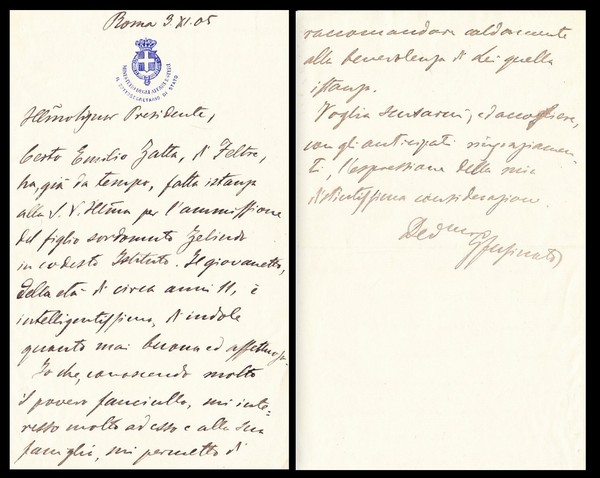 Roma 3 XI. 05
IL SOTTOSEGRETARIO DI STATO
Ill͞mo Signor Presidente,
Certo Emilio Zatta, di Feltre,
ha, già da tempo, fatta istanza
alla S. V. Ill͞ma per l'ammissione
del figlio sordomuto Zelindo
in codesto Istituto. Il giovanetto,
della età di circa anni 11, è
intelligentissimo, d'indole
quanto mai buona ed affettuosa.
Io che, conoscendo molto
il povero fanciullo, mi inte-
resso molto ad esso e alla sua
famiglia, mi permetto di
raccomandare caldamente
alla benevolenza di Lei quella
istanza.
Voglia scusarmi, ed accogliere,
con gli anticipati ringraziamen-
ti, l'espressione della mia
distintissima considerazione.
Dev͞mo
Fusinato